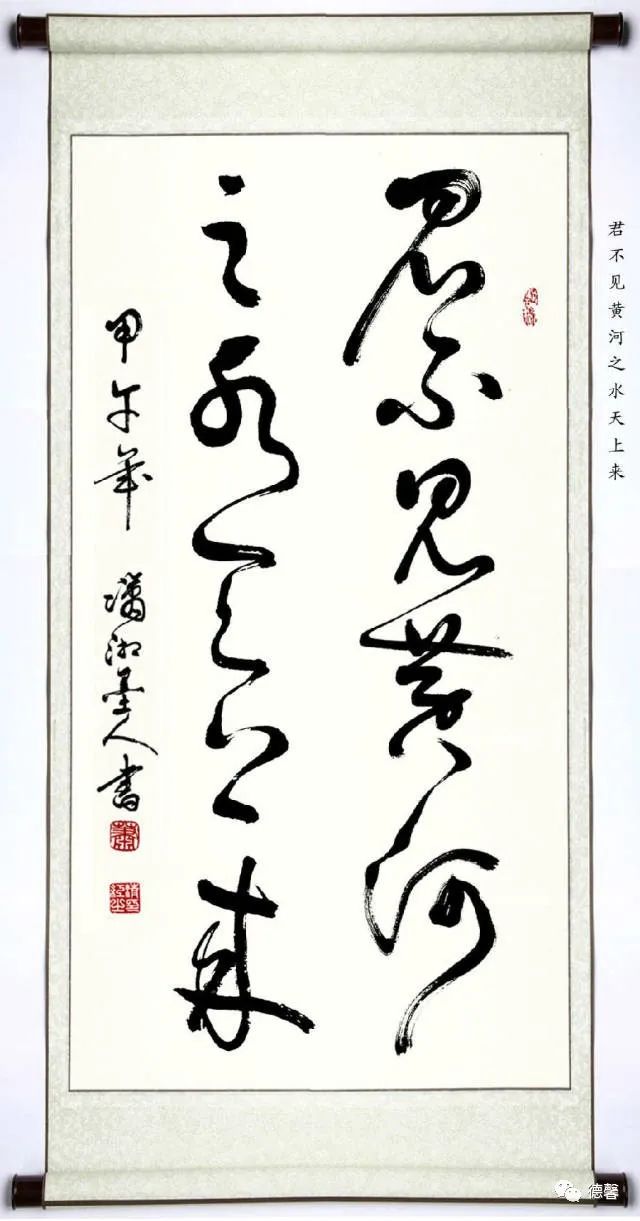 君不见黄河
之水天上来
甲午年 潇湘墨人书
君不见黄河之水天上来
德馨